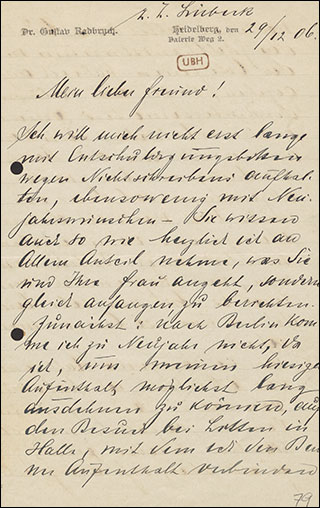 z. Z. Lübeck
Dr. Gustav Radbruch.
Heidelberg, den 29/12 06.
Valerie Weg 2.
UBH
Mein lieber Freund!
Ich will mich nicht erst lange
mit Entschuldigungsbitten
wegen Nichtschreibens aufhal-
ten, ebensowenig mit Neu-
jahrswünschen – Sie wissen
auch so wie herzlich ich an
Allem Anteil nehme, was Sie
und Ihre Frau angeht, sondern
gleich anfangen zu berichten.
Zunächst: Nach Berlin kom-
me ich zu Neujahr nicht, da
ich, um meinen hiesigen
Aufenthalt möglichst lang
ausdehnen zu können, auf
den Besuch bei in
Halle, mit dem ich den Berli-
ner Aufenthalt verbinden
79